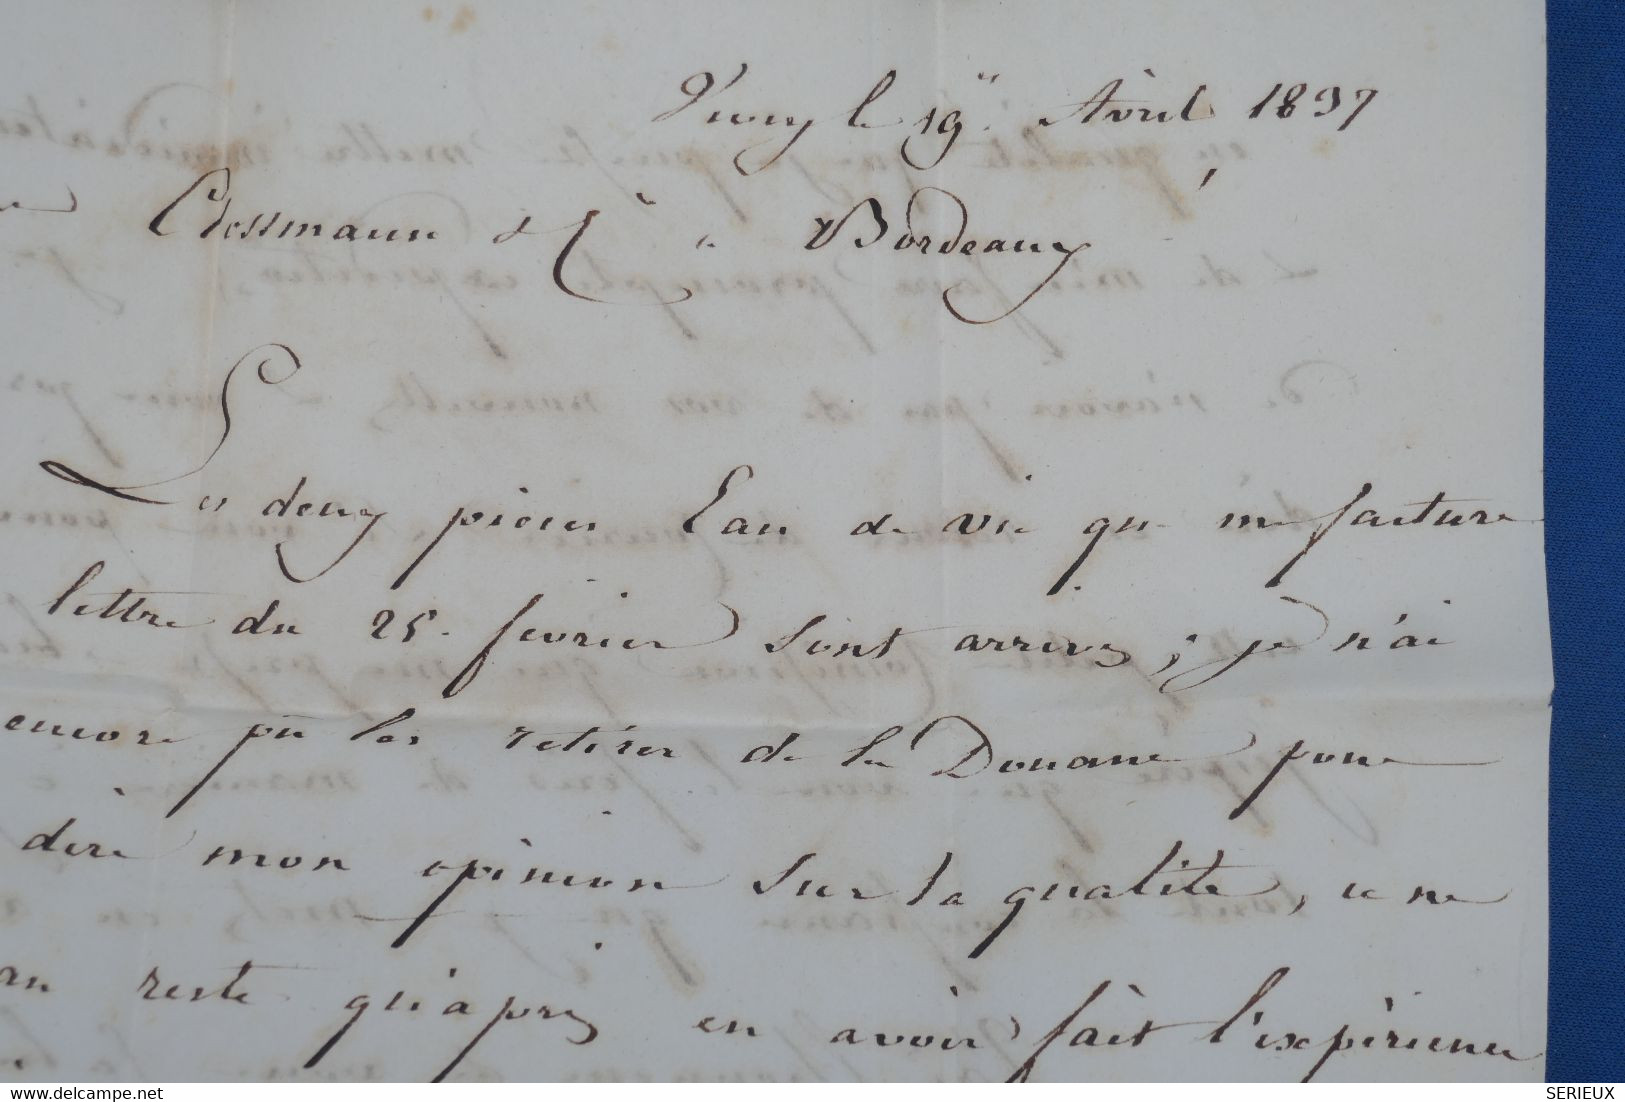 le 19 Avril 1837
Clossmann & Cie à Bordeaux
Les deux pièces Eau de vie que me facture
lettre du 25 fevrier sont arrivés, je n'ai
encore pû les retirer de la Douane pour
dire mon opinion sur la qualité, ce ne
reste qu'après en avoir fait l'expérience
SERIEUX